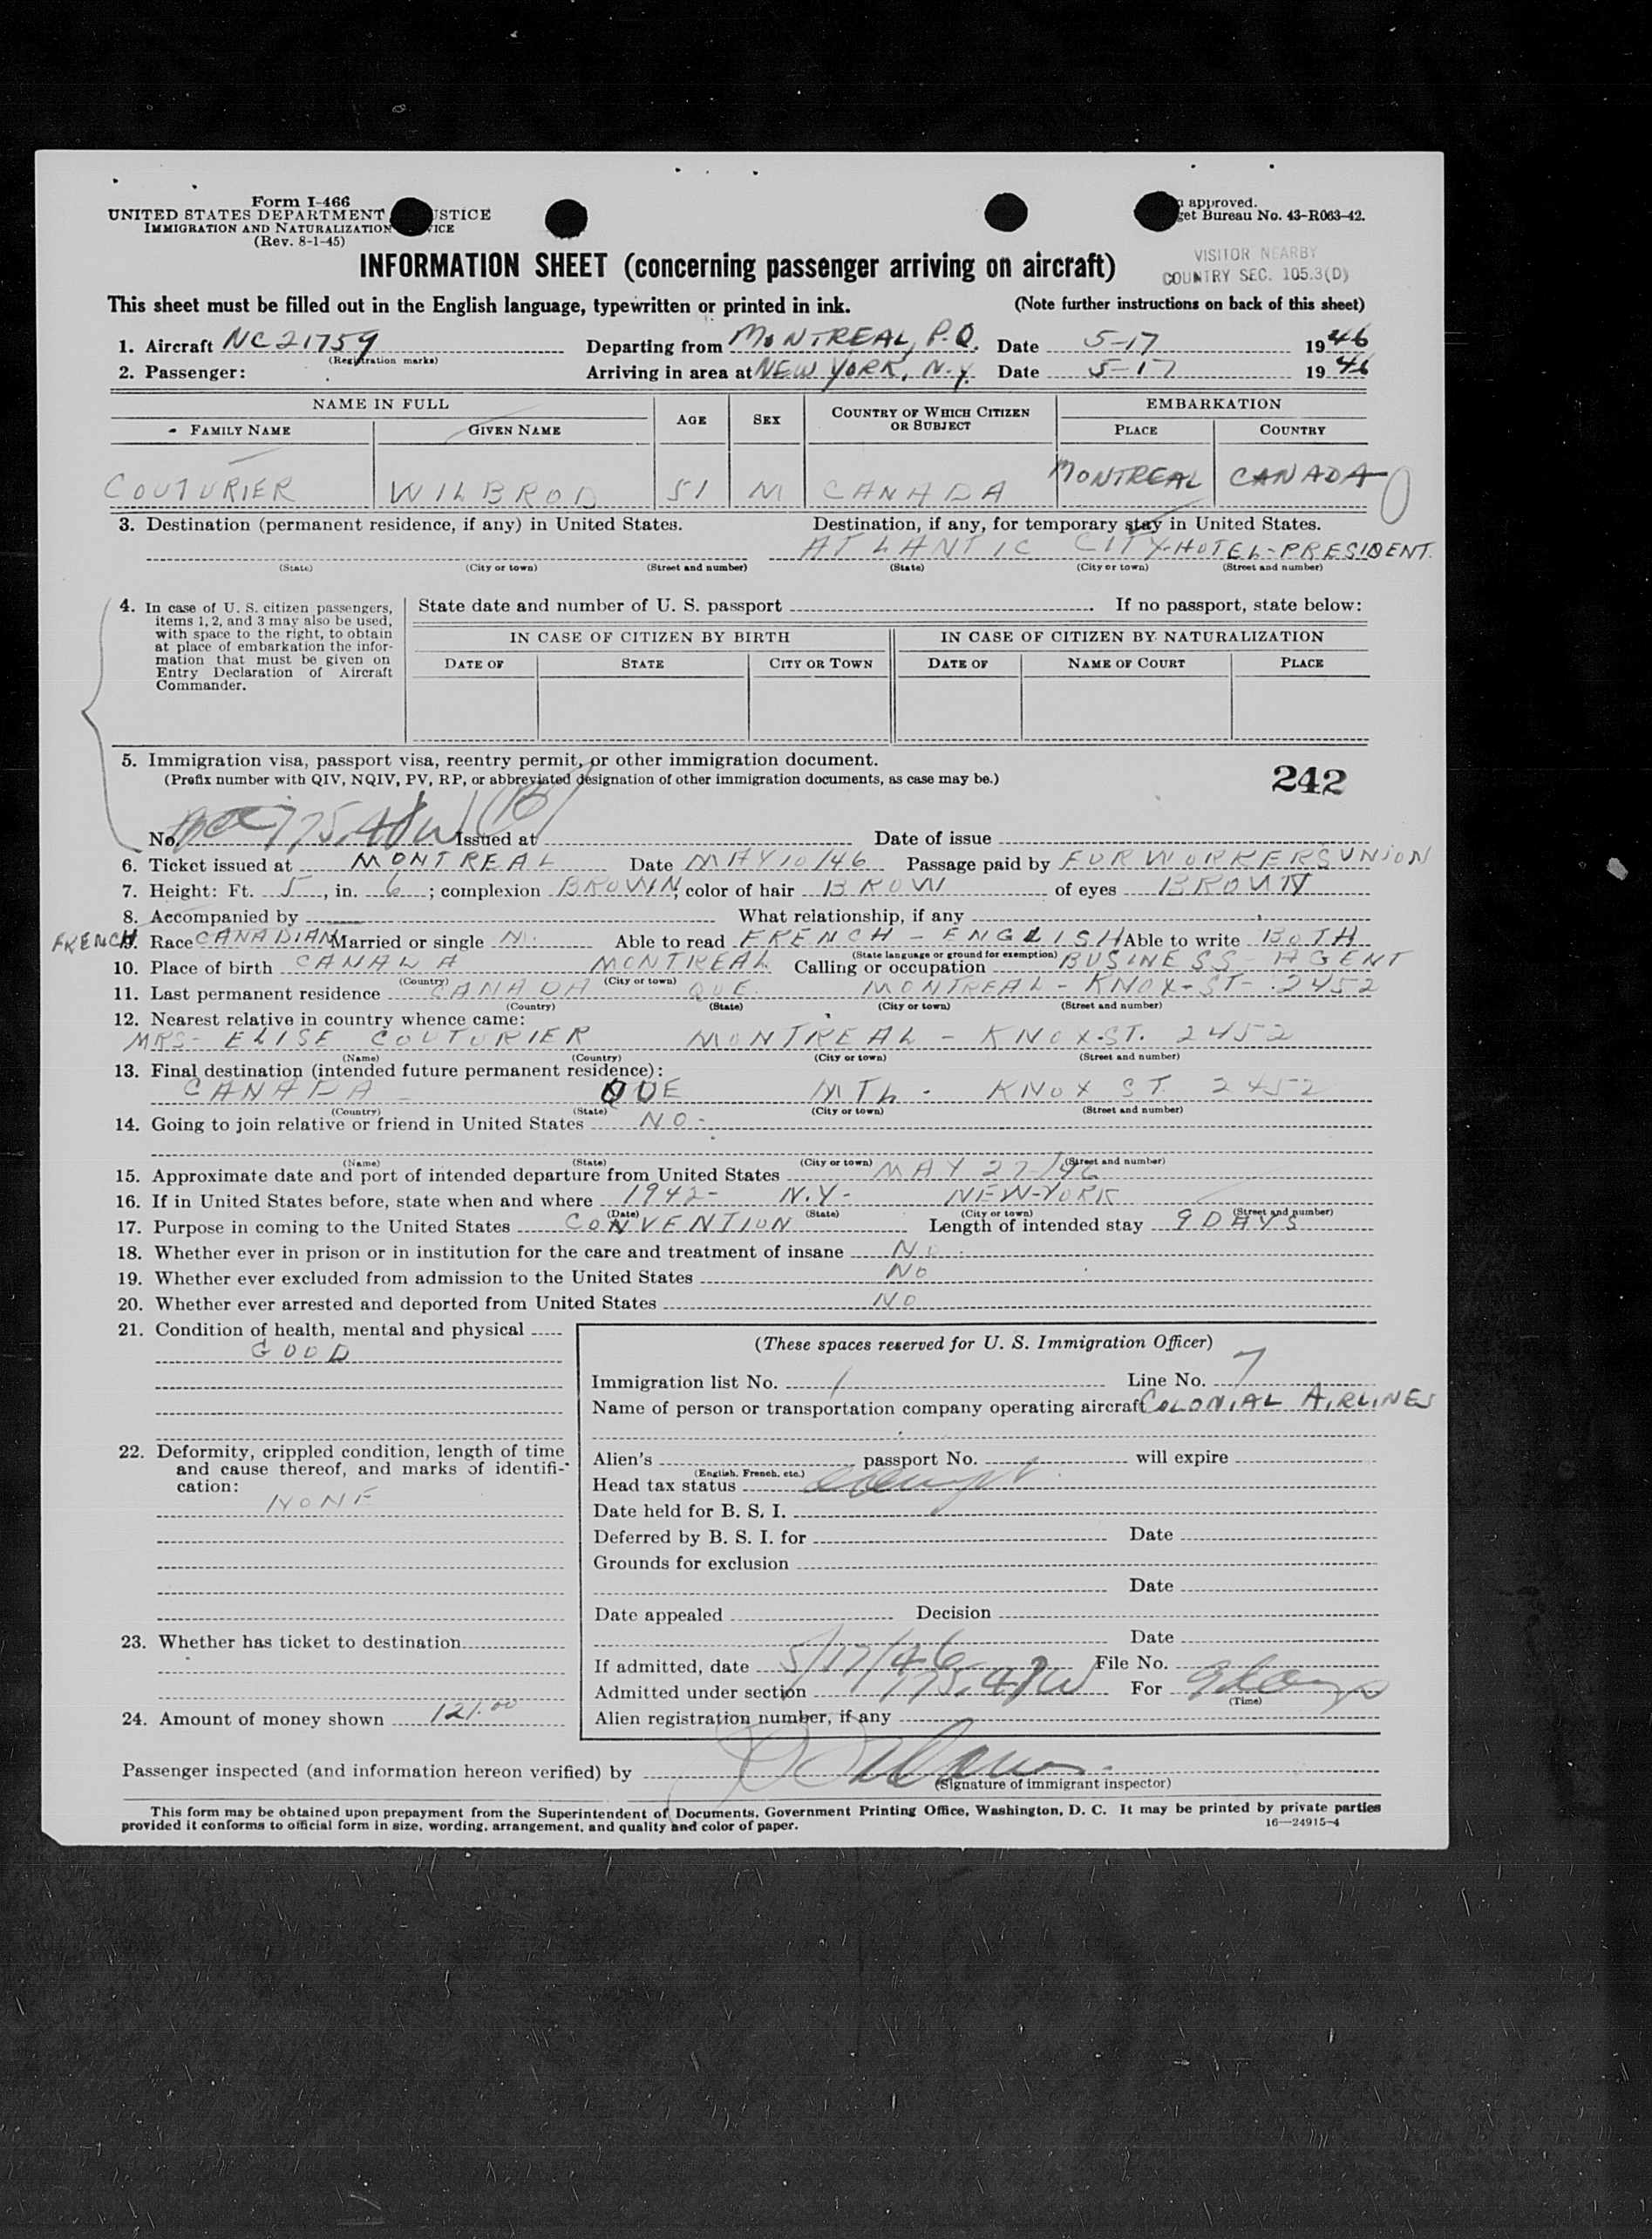 Form I-466
UNITED STATES DEPARTMENT USTICE
IMMIGRATION AND NATURALIZATION VICE
(Rev. 8-1-45)
approved.
get Bureau No. 43-R063-42.
VISITOR NEARBY
COUNTRY SEC. 105.3(D)
INFORMATION SHEET (concerning passenger arriving on aircraft)
This sheet must be filled out in the English language, typewritten or printed in ink. (Note further instructions on back of this sheet)
1. Aircraft NC21759 Departing from MONTREAL, P.Q. Date 5-17 1946
(Registration marks)
2. Passenger: Arriving in area at NEW YORK, N.Y. Date 5-17 1946
NAME IN FULL AGE SEX COUNTRY OF WHICH CITIZEN OR SUBJECT EMBARKATION
FAMILY NAME GIVEN NAME PLACE COUNTRY
COUTURIER WILBROD 51 M CANADA MONTREAL CANADA
3. Destination (permanent residence, if any) in United States. Destination, if any, for temporary stay in United States.
ATLANTIC CITY-HOTEL-PRESIDENT.
(State) (City or town) (Street and number) (State) (City or town) (Street and number)
4. In case of U. S. citizen passengers, items 1, 2, and 3 may also be used, with space to the right, to obtain at place of embarkation the information that must be given on Entry Declaration of Aircraft Commander.
State date and number of U. S. passport If no passport, state below:
IN CASE OF CITIZEN BY BIRTH IN CASE OF CITIZEN BY NATURALIZATION
DATE OF STATE CITY OR TOWN DATE OF NAME OF COURT PLACE
5. Immigration visa, passport visa, reentry permit, or other immigration document.
(Prefix number with QIV, NQIV, PV, RP, or abbreviated designation of other immigration documents, as case may be.)
242
No. Issued at Date of issue
6. Ticket issued at MONTREAL Date MAY 10/46 Passage paid by FUR WORKERS UNION
7. Height: Ft. 5, in. 6; complexion BROWN; color of hair BROW of eyes BROWN
8. Accompanied by What relationship, if any
FRENCH
9. Race CANADIAN Married or single M. Able to read FRENCH - ENGLISH Able to write BOTH
(State language or ground for exemption)
10. Place of birth CANADA MONTREAL Calling or occupation BUSINESS-AGENT
(Country) (City or town)
11. Last permanent residence CANADA QUE. MONTREAL - KNOX-ST- 2452
(Country) (State) (City or town) (Street and number)
12. Nearest relative in country whence came:
MRS- ELISE COUTURIER MONTREAL - KNOX-ST. 2452
(Name) (Country) (City or town) (Street and number)
13. Final destination (intended future permanent residence):
CANADA - QUE MTL - KNOX ST. 2452
(Country) (State) (City or town) (Street and number)
14. Going to join relative or friend in United States NO-
(Name) (State) (City or town) (Street and number)
15. Approximate date and port of intended departure from United States MAY 27-/46
16. If in United States before, state when and where 1942- N.Y- NEW-YORK
(Date) (State) (City or town) (Street and number)
17. Purpose in coming to the United States CONVENTION Length of intended stay 9 DAYS
18. Whether ever in prison or in institution for the care and treatment of insane NO
19. Whether ever excluded from admission to the United States NO
20. Whether ever arrested and deported from United States NO
21. Condition of health, mental and physical
GOOD
22. Deformity, crippled condition, length of time and cause thereof, and marks of identification:
NONE
23. Whether has ticket to destination
24. Amount of money shown 121.00
(These spaces reserved for U. S. Immigration Officer)
Immigration list No. 1 Line No. 7
Name of person or transportation company operating aircraft COLONIAL AIRLINES
Alien's passport No. will expire
(English, French, etc.)
Head tax status exempt
Date held for B. S. I.
Deferred by B. S. I. for Date
Grounds for exclusion
Date
Date appealed Decision
Date
If admitted, date 5/17/46 File No.
Admitted under section 175.41W For 9 days
(Time)
Alien registration number, if any
Passenger inspected (and information hereon verified) by
(Signature of immigrant inspector)
This form may be obtained upon prepayment from the Superintendent of Documents, Government Printing Office, Washington, D. C. It may be printed by private parties
provided it conforms to official form in size, wording, arrangement, and quality and color of paper. 16—24915-4